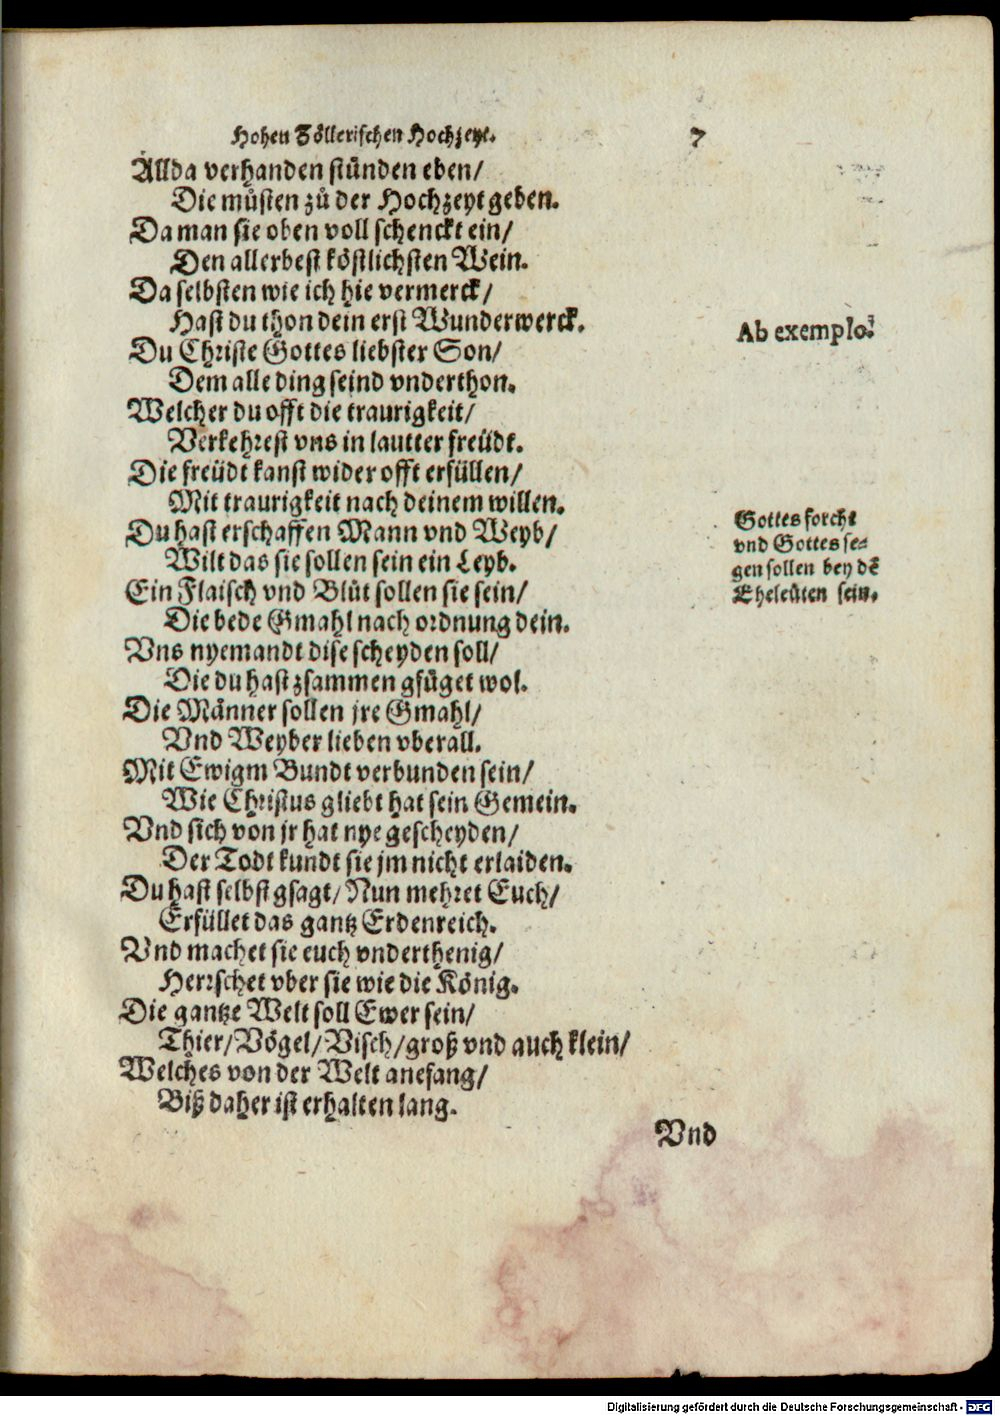 Hohen Zöllerischen Hochzeyt. 7
Allda verhanden stünden eben/
Die můsten zů der Hochzeyt geben.
Da man sie oben voll schenckt ein/
Den allerbest köstlichsten Wein.
Da selbsten wie ich hie vermerck/
Hast du thon dein erst Wunderwerck.
Ab exemplo.
Du Christe Gottes liebster Son/
Dem alle ding seind vnderthon.
Welcher du offt die traurigkeit/
Verkehrest vns in lautter freüdt.
Die freüdt kanst wider offt erfüllen/
Mit traurigkeit nach deinem willen.
Du hast erschaffen Mann vnd Weyb/
Wilt das sie sollen sein ein Leyb.
Ein Flaisch vnd Blůt sollen sie sein/
Die bede Gmahl nach ordnung dein.
Gottes forcht
vnd Gottes se-
gen sollen bey dē
Eheleüten sein.
Vns nyemandt dise scheyden soll/
Die du hast zsammen gfüget wol.
Die Männer sollen jre Gmahl/
Vnd Weyber lieben vberall.
Mit Ewigm Bundt verbunden sein/
Wie Christus gliebt hat sein Gemein.
Vnd sich von jr hat nye gescheyden/
Der Todt kundt sie jm nicht erlaiden.
Du hast selbst gsagt/ Nun mehret Euch/
Erfüllet das gantz Erdenreich.
Vnd machet sie euch vnderthenig/
Herrschet vber sie wie die König.
Die gantze Welt soll Ewer sein/
Thier/ Vögel/ Visch/ groß vnd auch klein/
Welches von der Welt anefang/
Biß daher ist erhalten lang.
Vnd
Digitalisierung gefördert durch die Deutsche Forschungsgemeinschaft - DFG